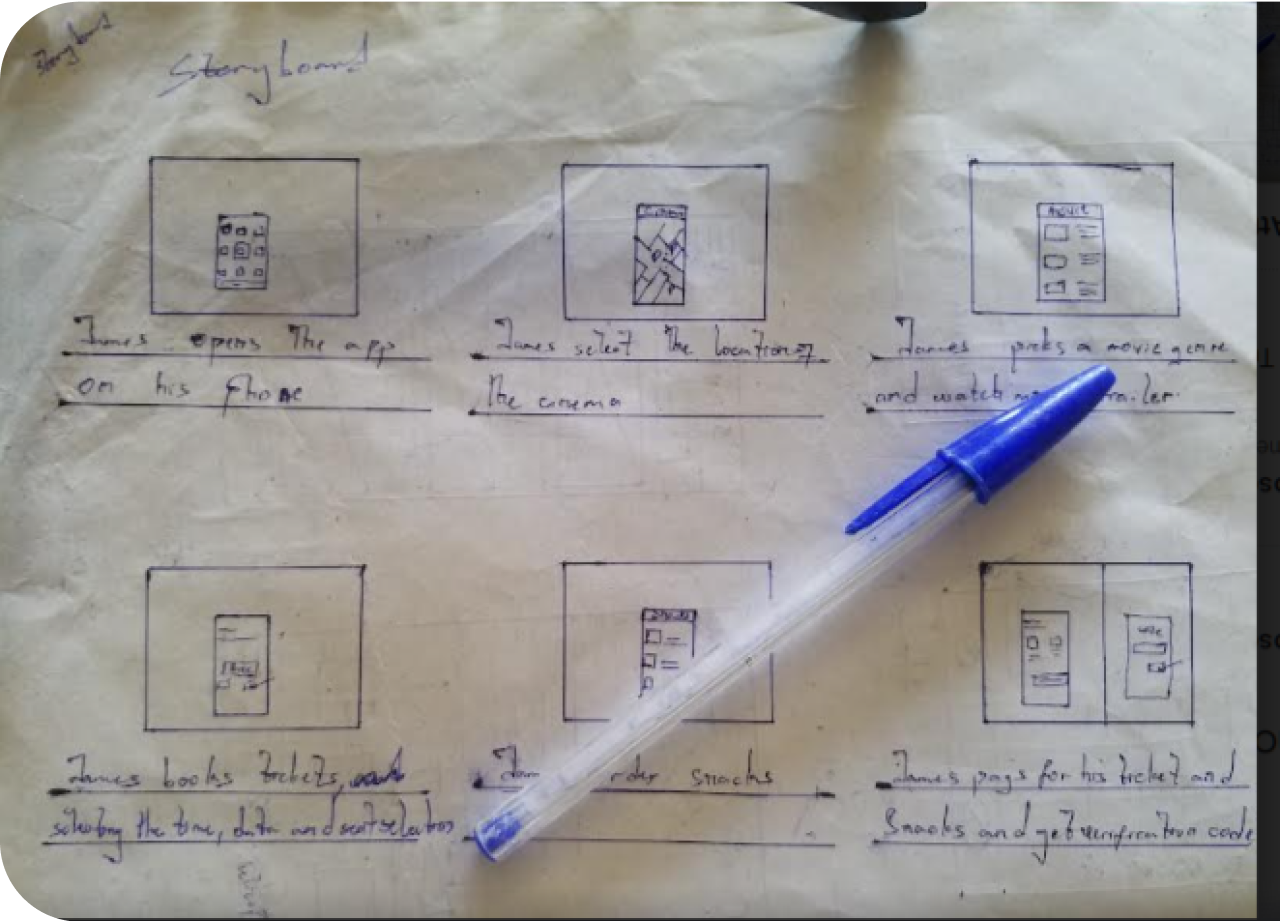 Storyboard
Storyboard
Cinema
MOVIE
James opens the app
on his phone
James select the location of
the cinema
James picks a movie genre
and watch trailer.
SNACKS
code
James books tickets,
selecting the time, data and seat selection
order snacks
James pays for his ticket and
Snacks and get verification code